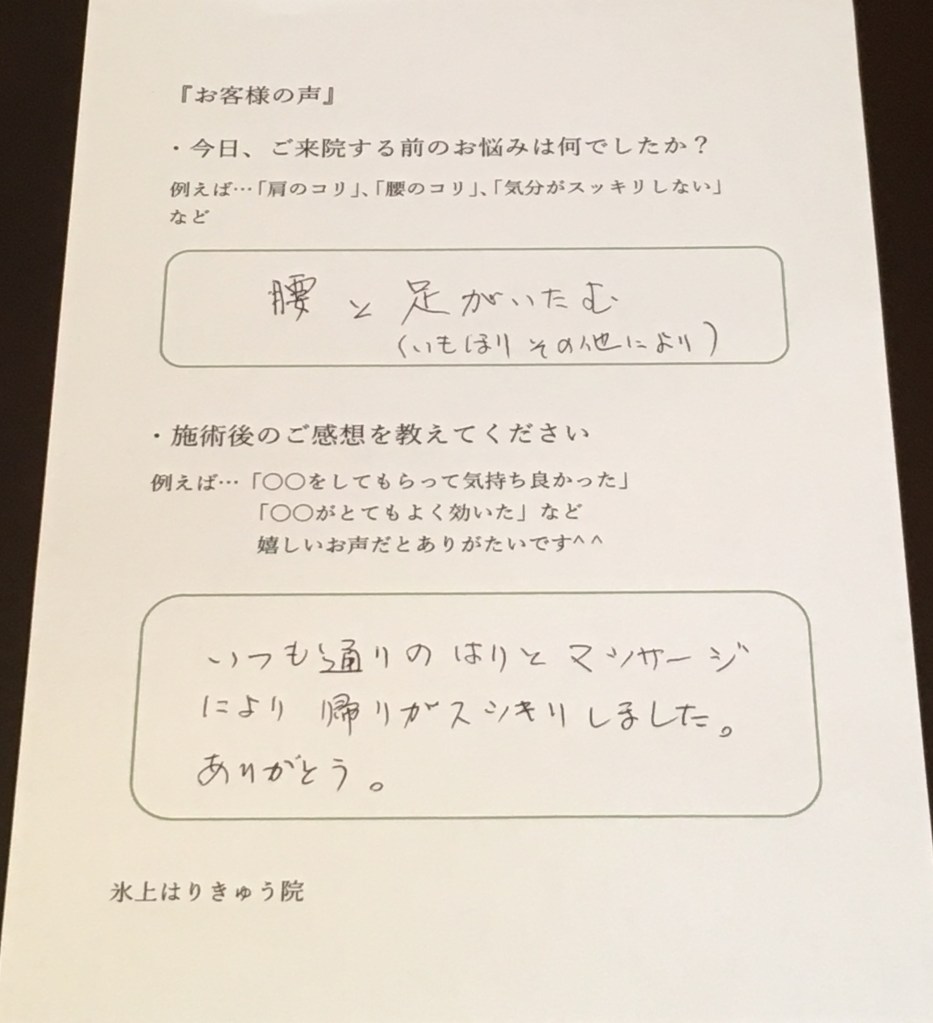 『お客様の声』
・今日、ご来院する前のお悩みは何でしたか？
例えば…「肩のコリ」、「腰のコリ」、「気分がスッキリしない」
など
腰と足がいたむ
（いもほりその他により）
・施術後のご感想を教えてください
例えば…「〇〇をしてもらって気持ち良かった」
「〇〇がとてもよく効いた」など
嬉しいお声だとありがたいです^ ^
いつも通りのはりとマッサージ
により帰りがスッキリしました。
ありがとう。
氷上はりきゅう院